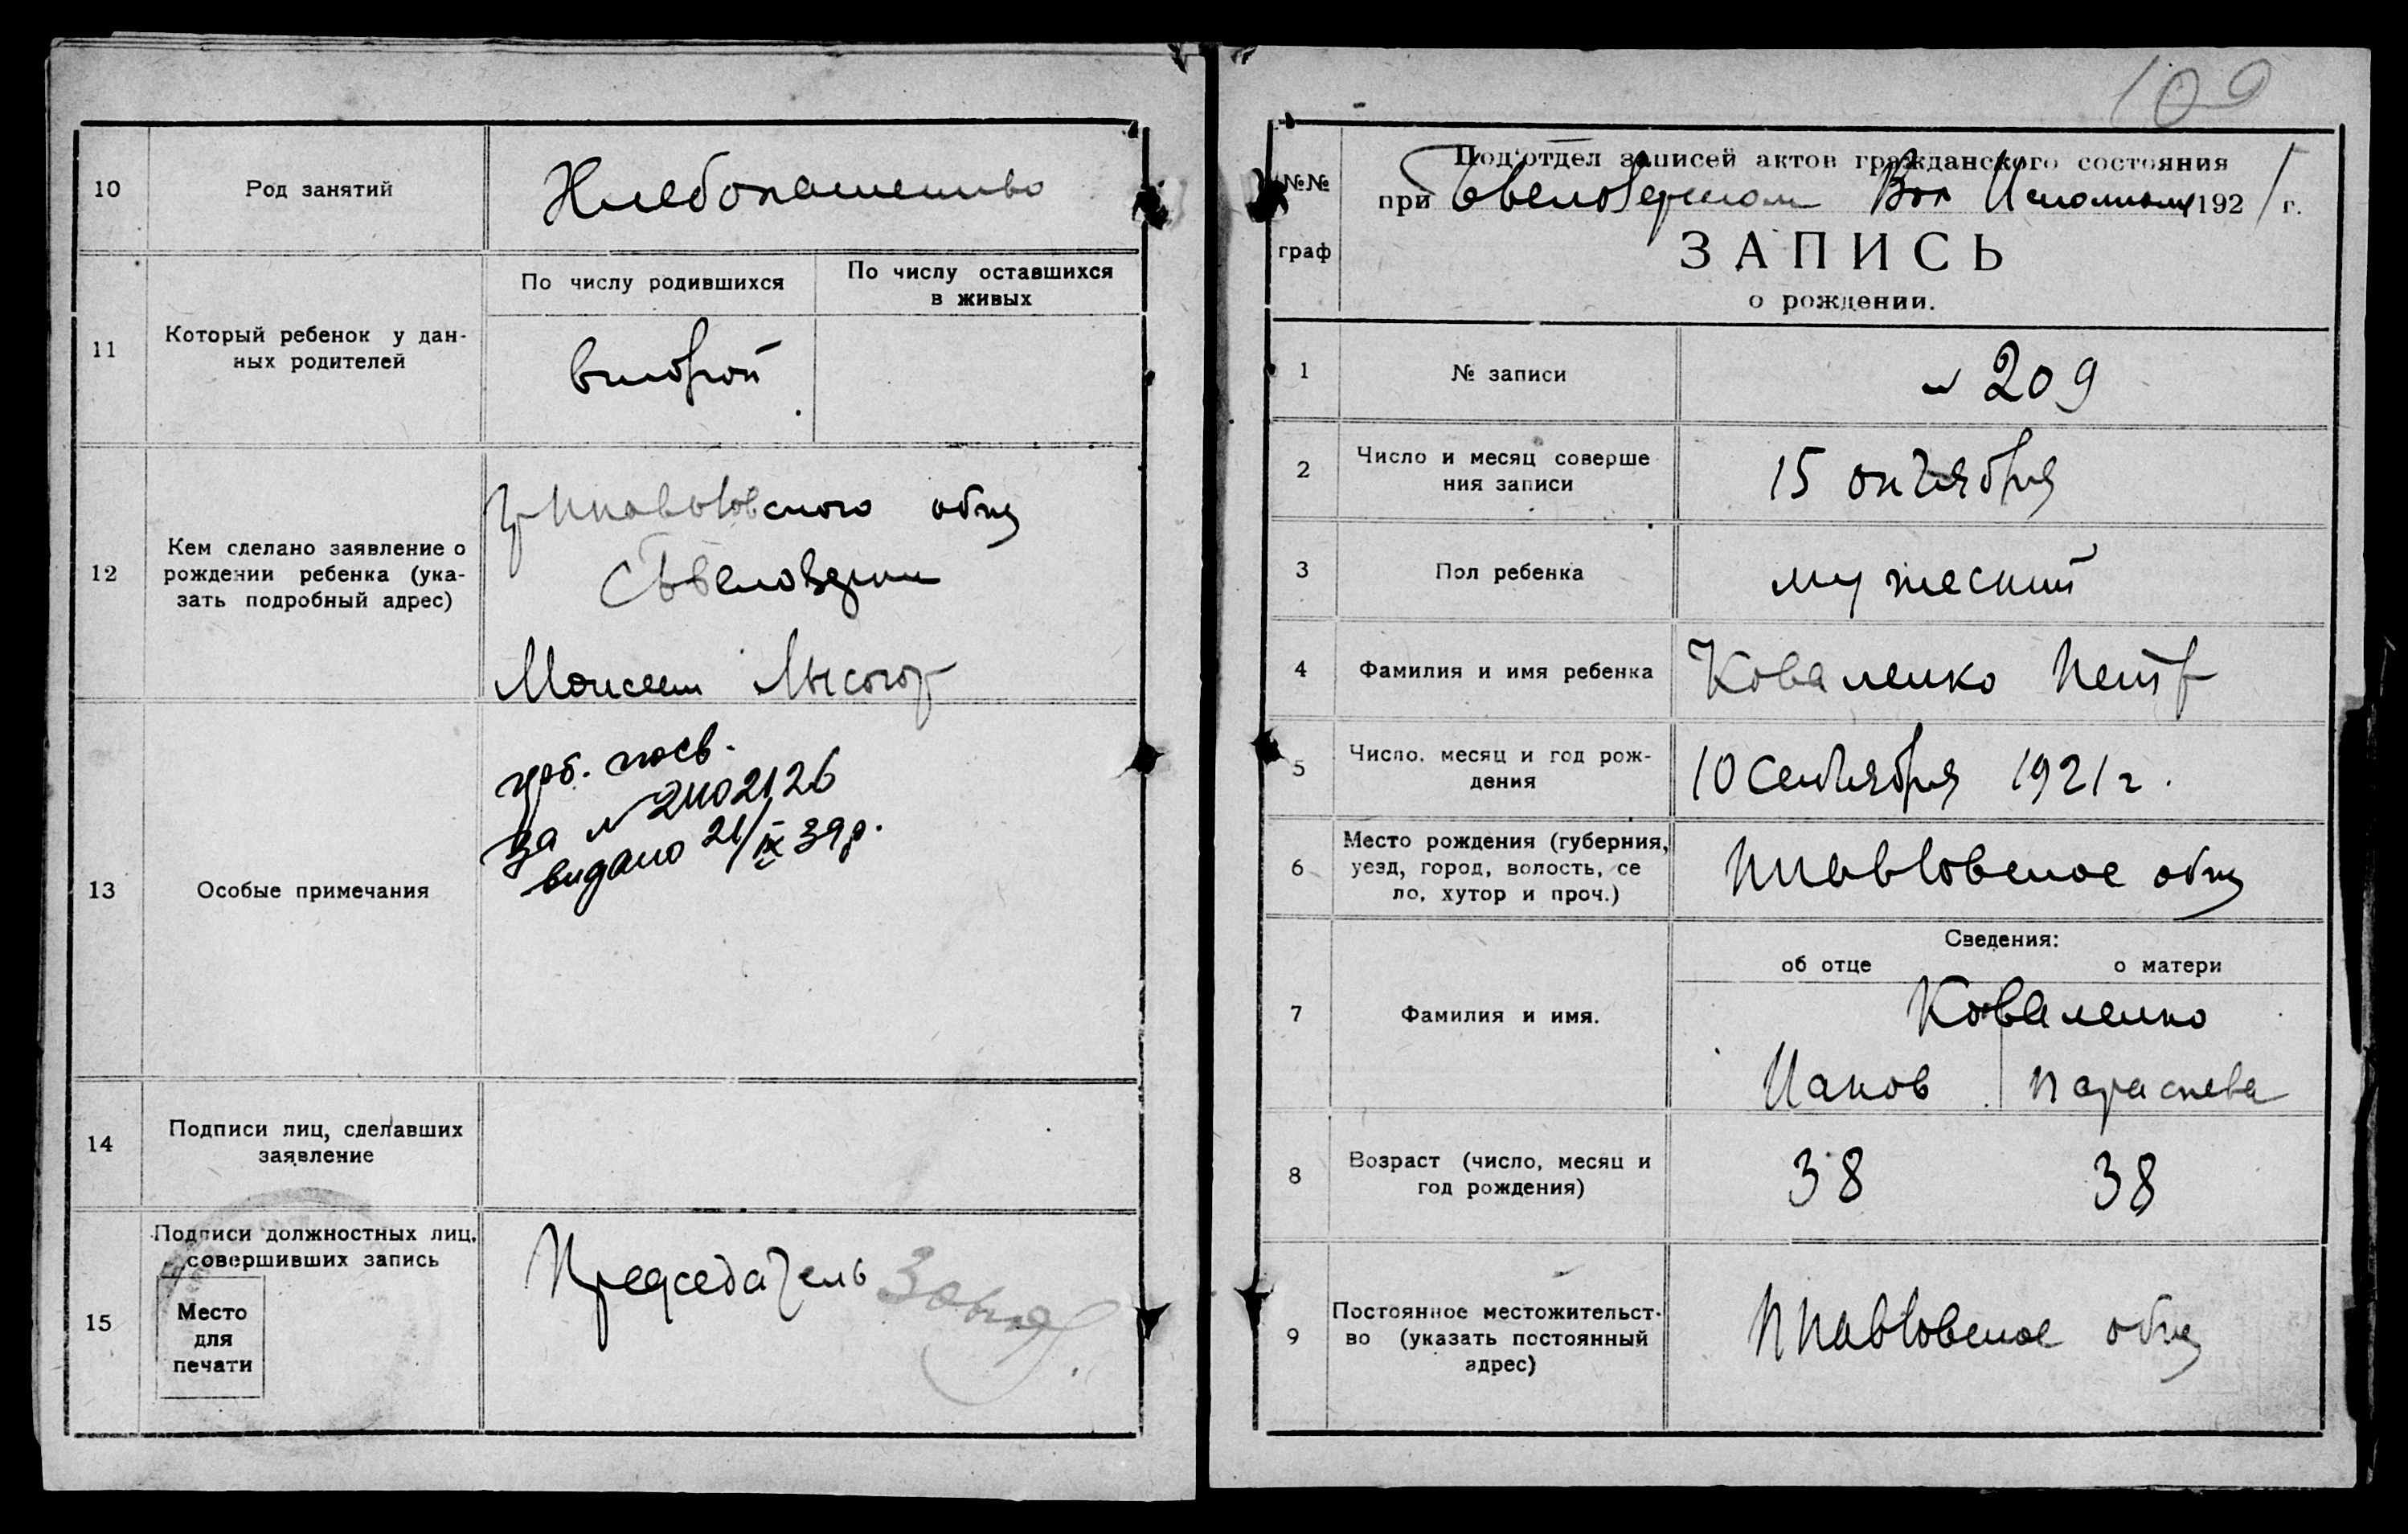 10
Род занятий
Хлебопашество
11
Который ребенок у дан-
ных родителей
По числу родившихся
По числу оставшихся
в живых
второй
12
Кем сделано заявление о
рождении ребенка (ука-
зать подробный адрес)
общ
Моисеем Лысогор
13
Особые примечания
за № 2402126
видано 21/IX 39р.
14
Подписи лиц, сделавших
заявление
15
Подписи должностных лиц,
совершивших запись
Место
для
печати
Председатель
109
№№
граф
Под'отдел записей актов гражданского состояния
при Вол Исполкоме 1921 г.
ЗАПИСЬ
о рождении.
1
№ записи
№ 209
2
Число и месяц соверше
ния записи
15 октября
3
Пол ребенка
мужеский
4
Фамилия и имя ребенка
Коваленко Петр
5
Число, месяц и год рож-
дения
10 сентября 1921 г.
6
Место рождения (губерния,
уезд, город, волость, се
ло, хутор и проч.)
общ
Сведения:
об отце
о матери
7
Фамилия и имя.
Коваленко
Иаков
Параскева
8
Возраст (число, месяц и
год рождения)
38
38
9
Постоянное местожительст-
во (указать постоянный
адрес)
общ